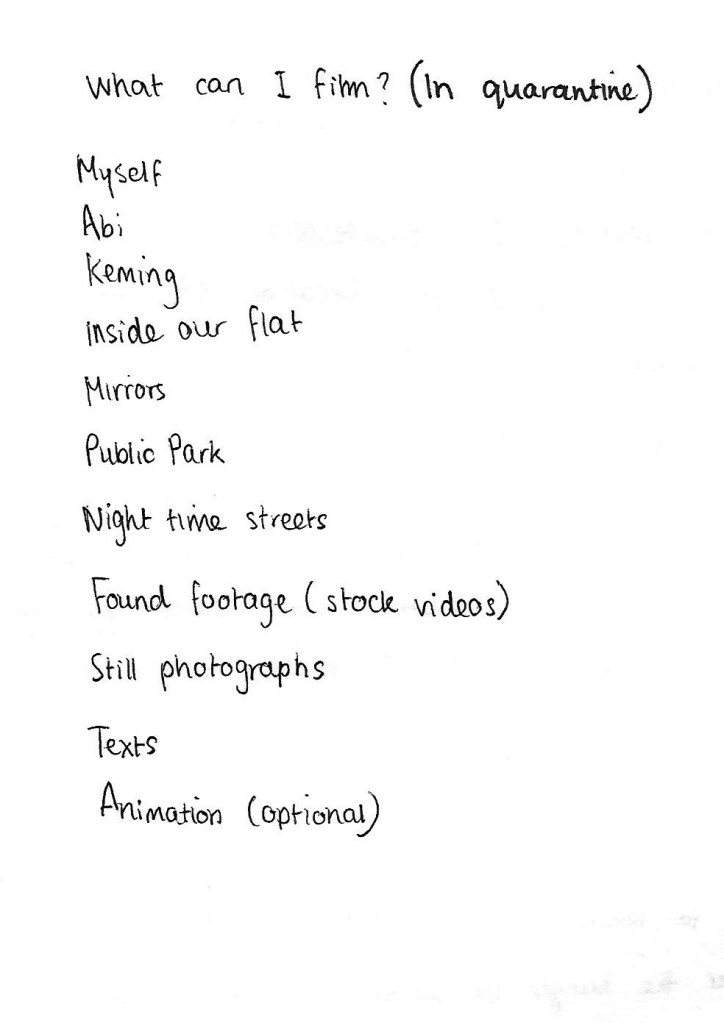 What can I film? (In quarantine)
Myself
Abi
Keming
inside our flat
Mirrors
Public Park
Night time streets
Found footage (stock videos)
Still photographs
Texts
Animation (optional)